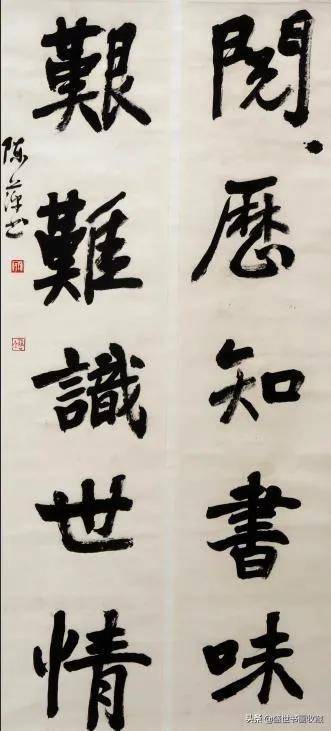 閱歷知書味
艱難識世情
陈
书
头条 @盛世书画收藏